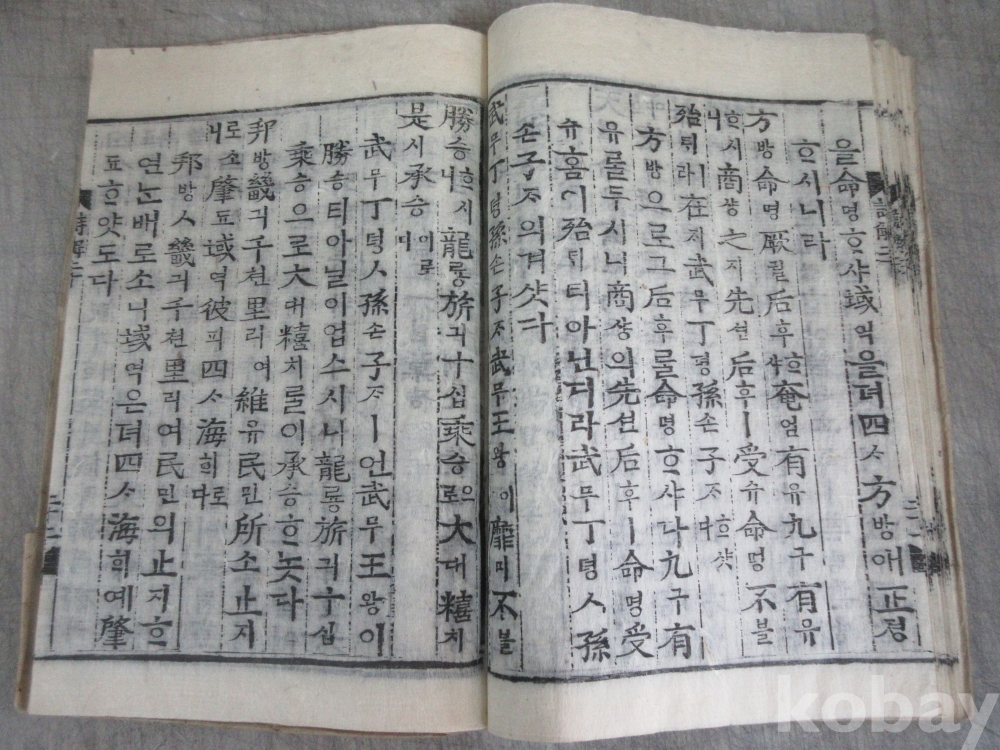 을命명ᄒᆞ샤域역을뎌四ᄉᆞ方방애正졍
ᄒᆞ시니라
方방命명厥궐后후ᄒᆞ샤奄엄有유九구有유
ᄒᆞ시니商샹之지先션后후ㅣ受슈命명不블
殆ᄐᆡ라在ᄌᆡ武무丁뎡孫손子ᄌᆞ
方방으로그后후를命명ᄒᆞ샤다九구有
유를두시니商샹의先션后후ㅣ命명受
슈홈이殆ᄐᆡ티아닌디라武무丁뎡ㅅ孫
손子ᄌᆞ의겨샷다
武무丁뎡孫손子ᄌᆞ武무王왕이靡미不블
勝승ᄒᆞ시니龍룡旂긔十십乘승으로大대糦치
是시承승이로다
武무丁뎡ㅅ孫손子ᄌᆞㅣ언武무王왕이
勝승티아닐이업스시니龍룡旂긔十십
乘승으로大대糦치를이承승ᄒᆞ놋다
邦방畿긔千쳔里리여維유民민所소止지
로소니肇됴域역彼피四ᄉᆞ海ᄒᆡ로다
邦방ㅅ畿긔千쳔里리여民민의止지ᄒᆞ
연ᄂᆞᆫ배로소니域역은뎌四ᄉᆞ海ᄒᆡ예肇
됴ᄒᆞ얏도다
kobay